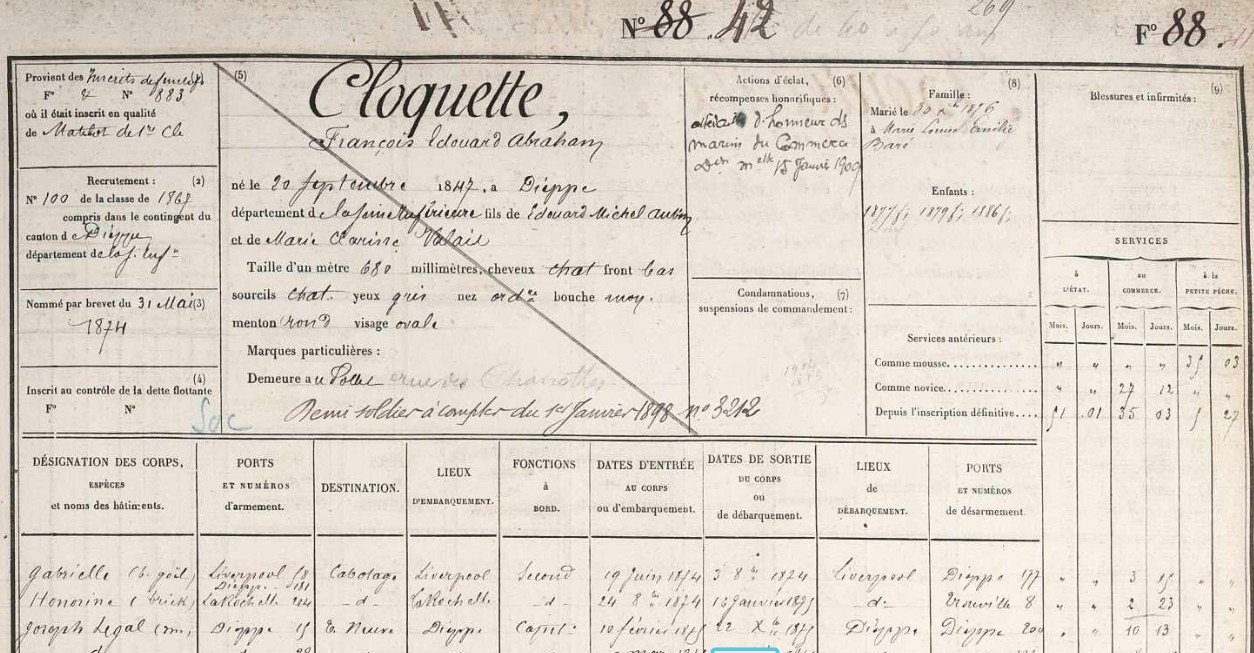 N° 88. 42
F° 88.
Provient des Inscrits
F° & N° 883
où il était inscrit en qualité
de Matelot de 1re Cle
Recrutement : (2)
N° 100 de la classe de 1867
compris dans le contingent du
canton de Dieppe
département de la S. Infre
Nommé par brevet du 31 Mai (3)
1874
Inscrit au contrôle de la dette flottante (4)
F° N°
(5)
Cloquette,
François Edouard Abraham
né le 20 Septembre 1847, à Dieppe
département de la Seine Inférieure fils de Edouard Michel Aubin
et de Marie Clarisse Valais
Taille d'un mètre 680 millimètres, cheveux chat front bas
sourcils chat. yeux gris nez ordre bouche moy.
menton rond visage ovale
Marques particulières :
Demeure au Pollet rue des
Demi soldier à compter du 1er Janvier 1898 n° 3212
Actions d'éclat, (6)
récompenses honorifiques :
d'honneur des
marins du Commerce
15 Janvier 1909
Condamnations, (7)
suspensions de commandement :
Famille : (8)
Marié le 30 Xbre 1876
à Marie Louise Emilie
Baré
Enfants :
1877 f; 1879 f; 1886 f;
Services antérieurs :
Comme mousse " " " " 35 03
Comme novice " " 27 12 " "
Depuis l'inscription définitive 51 .01 35 03 5 27
Blessures et infirmités : (9)
SERVICES
à L'ÉTAT. au COMMERCE. à la PETITE PÊCHE.
Mois. Jours. Mois. Jours. Mois. Jours.
DÉSIGNATION DES CORPS, ESPÈCES et noms des bâtiments.
PORTS ET NUMÉROS d'armement.
DESTINATION.
LIEUX D'EMBARQUEMENT.
FONCTIONS à BORD.
DATES D'ENTRÉE AU CORPS ou d'embarquement.
DATES DE SORTIE DU CORPS ou de débarquement.
LIEUX de DÉBARQUEMENT.
PORTS ET NUMÉROS de désarmement.
Gabrielle (b. goël) Liverpool 58 Cabotage Liverpool Second 19 Juin 1874 3 8bre 1874 Liverpool Dieppe 177 " " 3 15 " "
Dieppe 181
Honorine (brick) LaRochelle 224 -d- LaRochelle -d- 24 8bre 1874 16 Janvier 1875 -d- Trouville 8 " " 2 23 " "
Joseph Legal Dieppe 15 T. Neuve Dieppe Capne 10 février 1875 22 Xbre 1875 Dieppe Dieppe 200 " " 10 13 " "